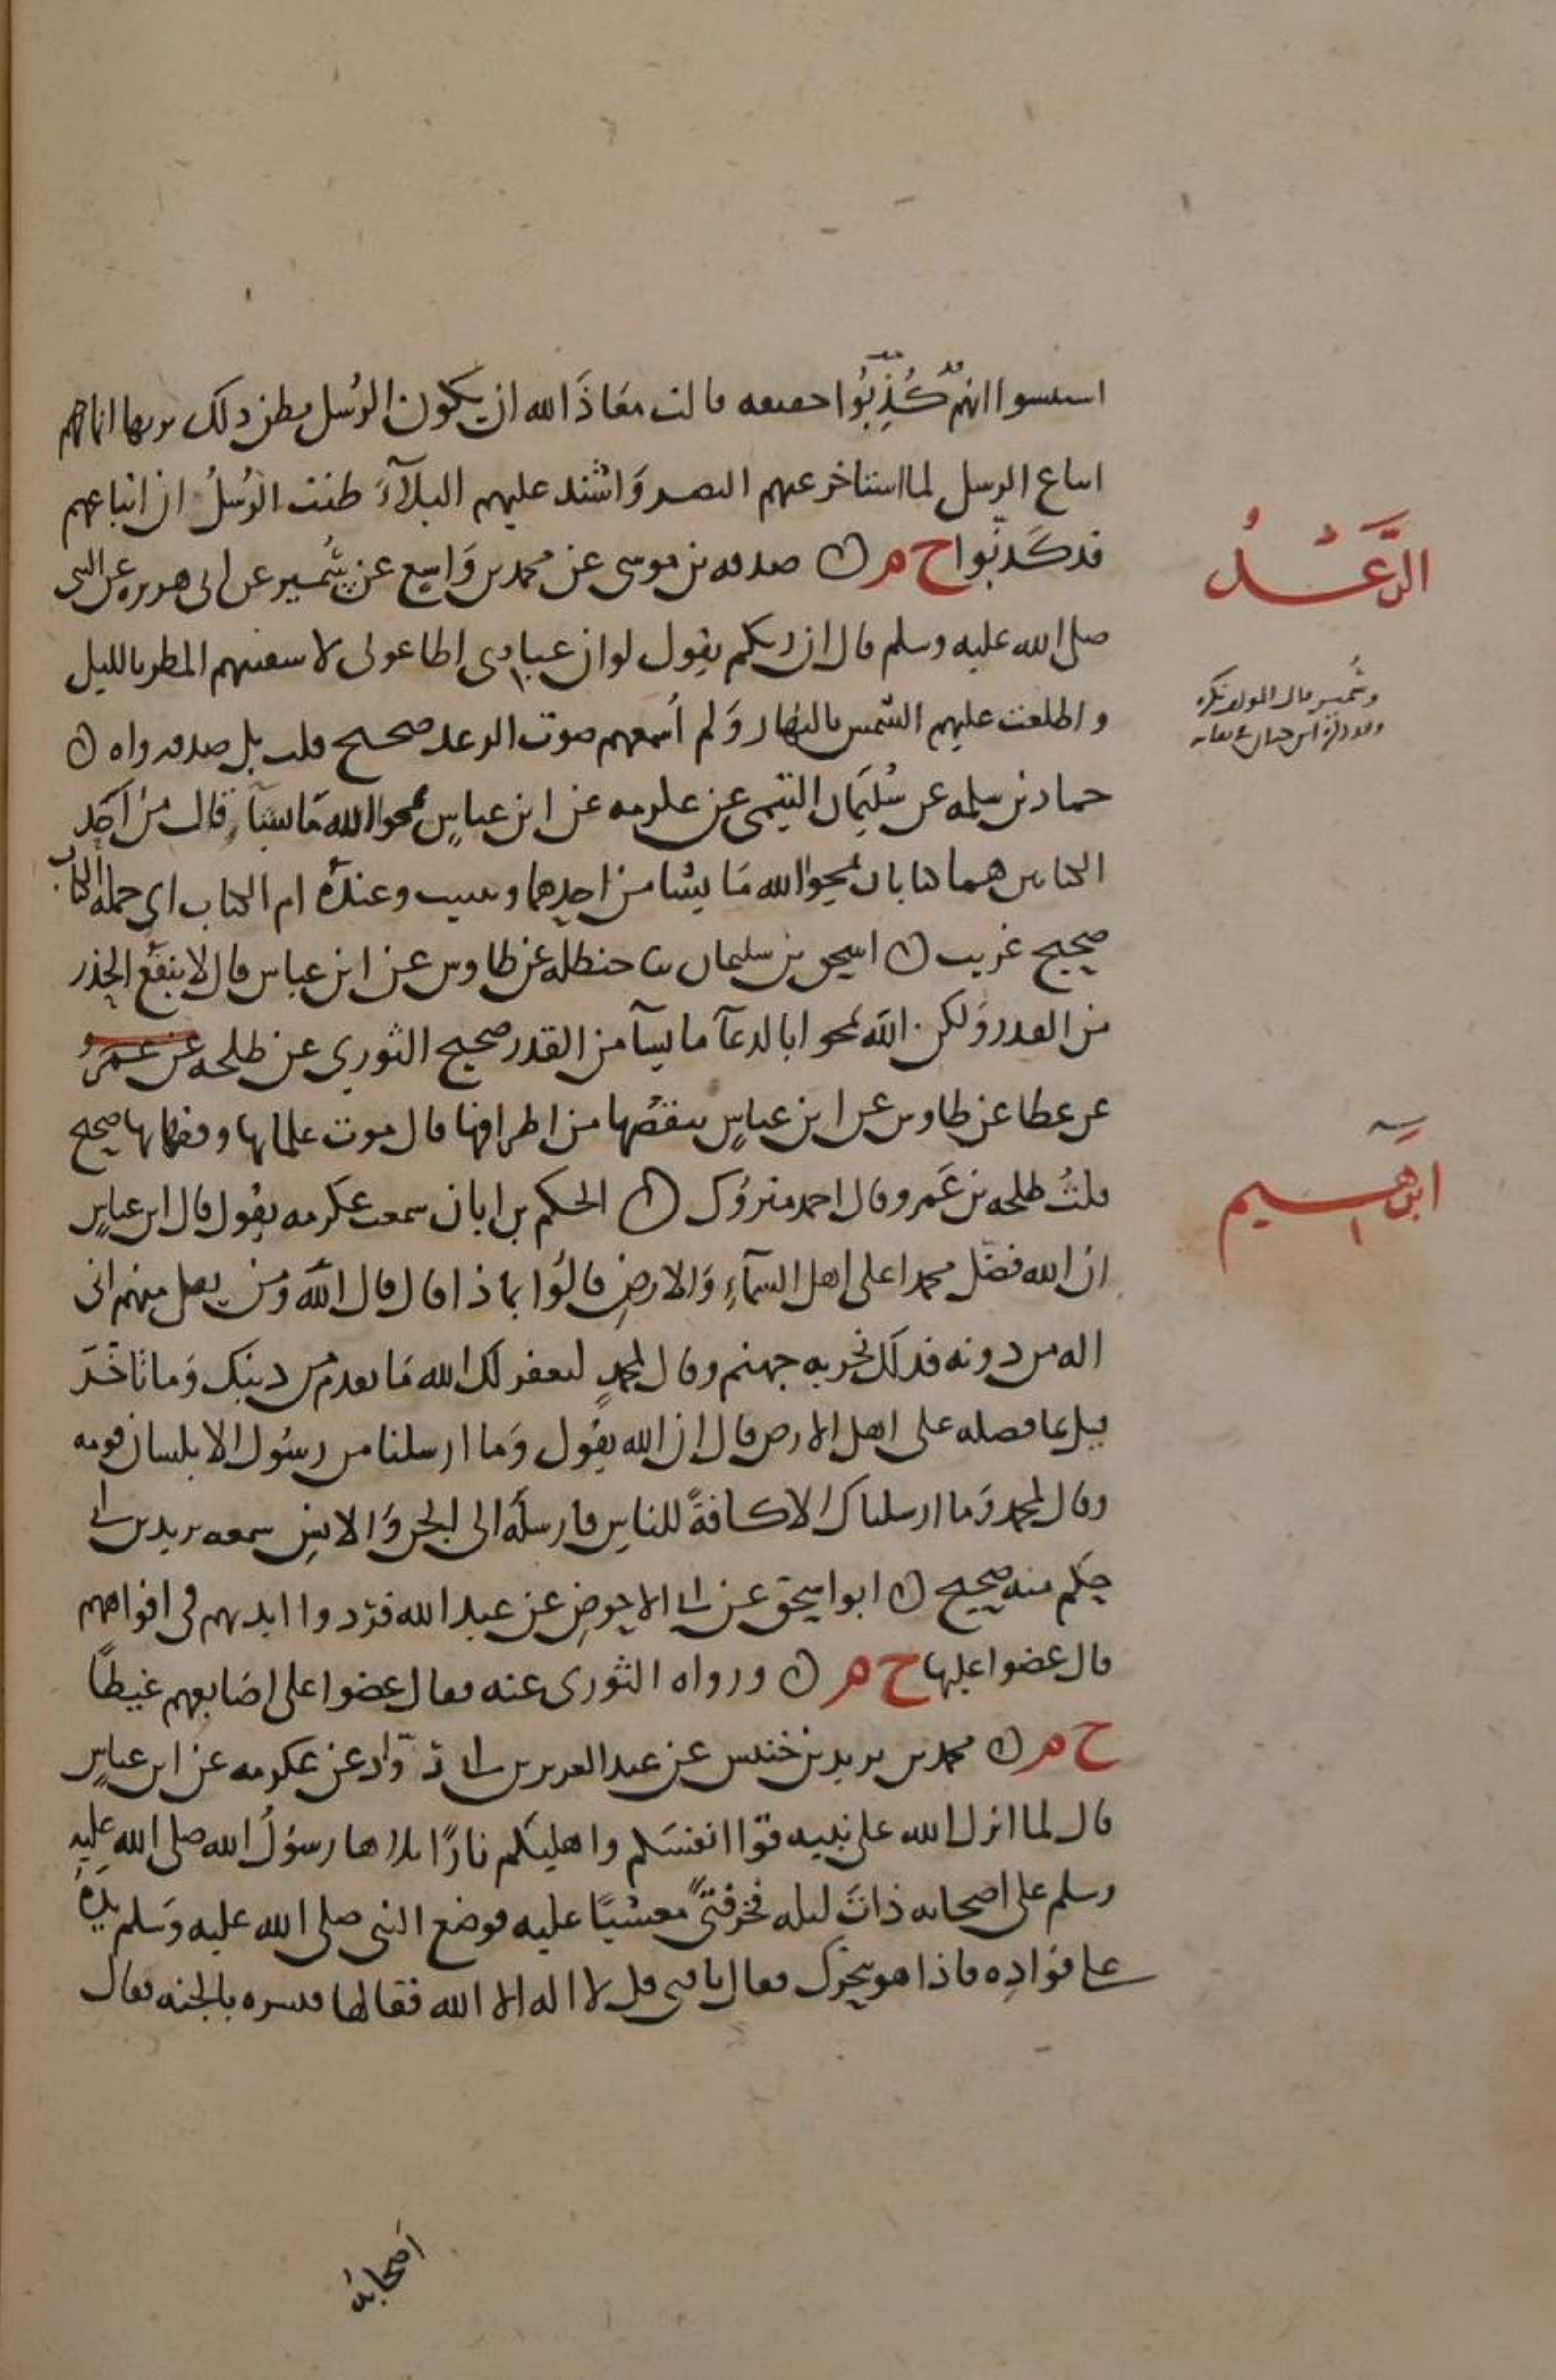 استيسوا انهم كُذِّبُوا خفيفه قالت معَاذَ الله ان يكون الرُسل يظن ذلك بربها انما هم
اتباع الرسل لما استاخر عنهم النصر وَاشتد عليهم البلآءَ ظنت الرُسلُ ان اتباعهم
قد كَذبُوا خ م ن صدقه بن موسى عن محمد بن وَاسِع عن شُمير عن ابى هريره عن النبى
صلى الله عليه وسلم قال ان ربكم يقول لو ان عبادى اطاعونى لاسقيتهم المطر بالليل
واطلعت عليهم الشمس بالنهار وَلم اُسمعهم صوت الرعد صحيح قلت بل صدقه واه ن
حماد بن سلمه عن سُليمَان التيمى عن عكرمه عن ابن عباسٍ يمحوا الله مَا يشآء قال من اَحَد
الكتابين هما كتابان يمحوا الله مَا يشا من احدهما ويثبت وعندهُ ام الكتاب اى جمله الكتاب
صحيح غريب ن اسحق بن سليمان ثنا حنظله عن طاوس عن ابن عباس قال لا ينفَع الحِذر
من القدر وَلكن الله يمحوا بالدعآ ما يشآ من القدر صحيح الثورى عن طلحه عن عَمرو
عن عطا عن طاوس عن ابن عباسٍ ننقصُها من اطرافها قال موت علمايها وفقهايها صحيح
قلتُ طلحه بن عَمرو قال احمد متروُك ن الحكم بن ابان سمعت عكرمه يقُول قال ابن عباسٍ
ان الله فضّل محمدا على اهل السمآءِ وَالارضِ قالوُا بماذا قال قال الله وَمن يقل منهم انى
اله من دونه فذلك نجزيه جهنم وقال لمحمدٍ ليغفر لك الله مَا تقدم من ذنبك وَما تاخَّرَ
قيل بما فضله على اهل الارض قال ان الله يقُول وَما ارسلنا من رسُول الا بلسان قومه
وقال لمحمد وَما ارسلناك الا كافةً للناسِ فارسلَه الى الجن وَالانسِ سمعه يزيد بن ابى
حكِيم منه صحيح ن ابوا سحق عن ابى الاحوصِ عن عبد الله فرَدوا ايديهم فى افواههم
قال عضوا عليها خ م ن ورواه الثورى عنه فقال عضوا على اصَابعهم غيظًا
خ م ن محمد بن يزيد بن خنيس عن عبد العزيز بن ابى رَوّاد عن عكرمه عن ابن عباسٍ
قال لما انزل الله على نبيه قوا انفسَكم واهليكم نارًا تلاها رسوُلُ الله صلى الله عليه
وسلم على اصحابه ذاتَ ليله فخر فتىً مغشيًا عليه فوضع النبى صلى الله عليه وَسلم يدَهُ
على فوُادِه فاذا هو يتحرك فقال يا فتى قل لا اله الا الله فقالها فبشره بالجنه فقال
اَصحابُه
الرَّعْـــدُ
وشُمير قال المولف نكره
وقد ذكره ابن حبان فى ثقاته
ابرَهــيم